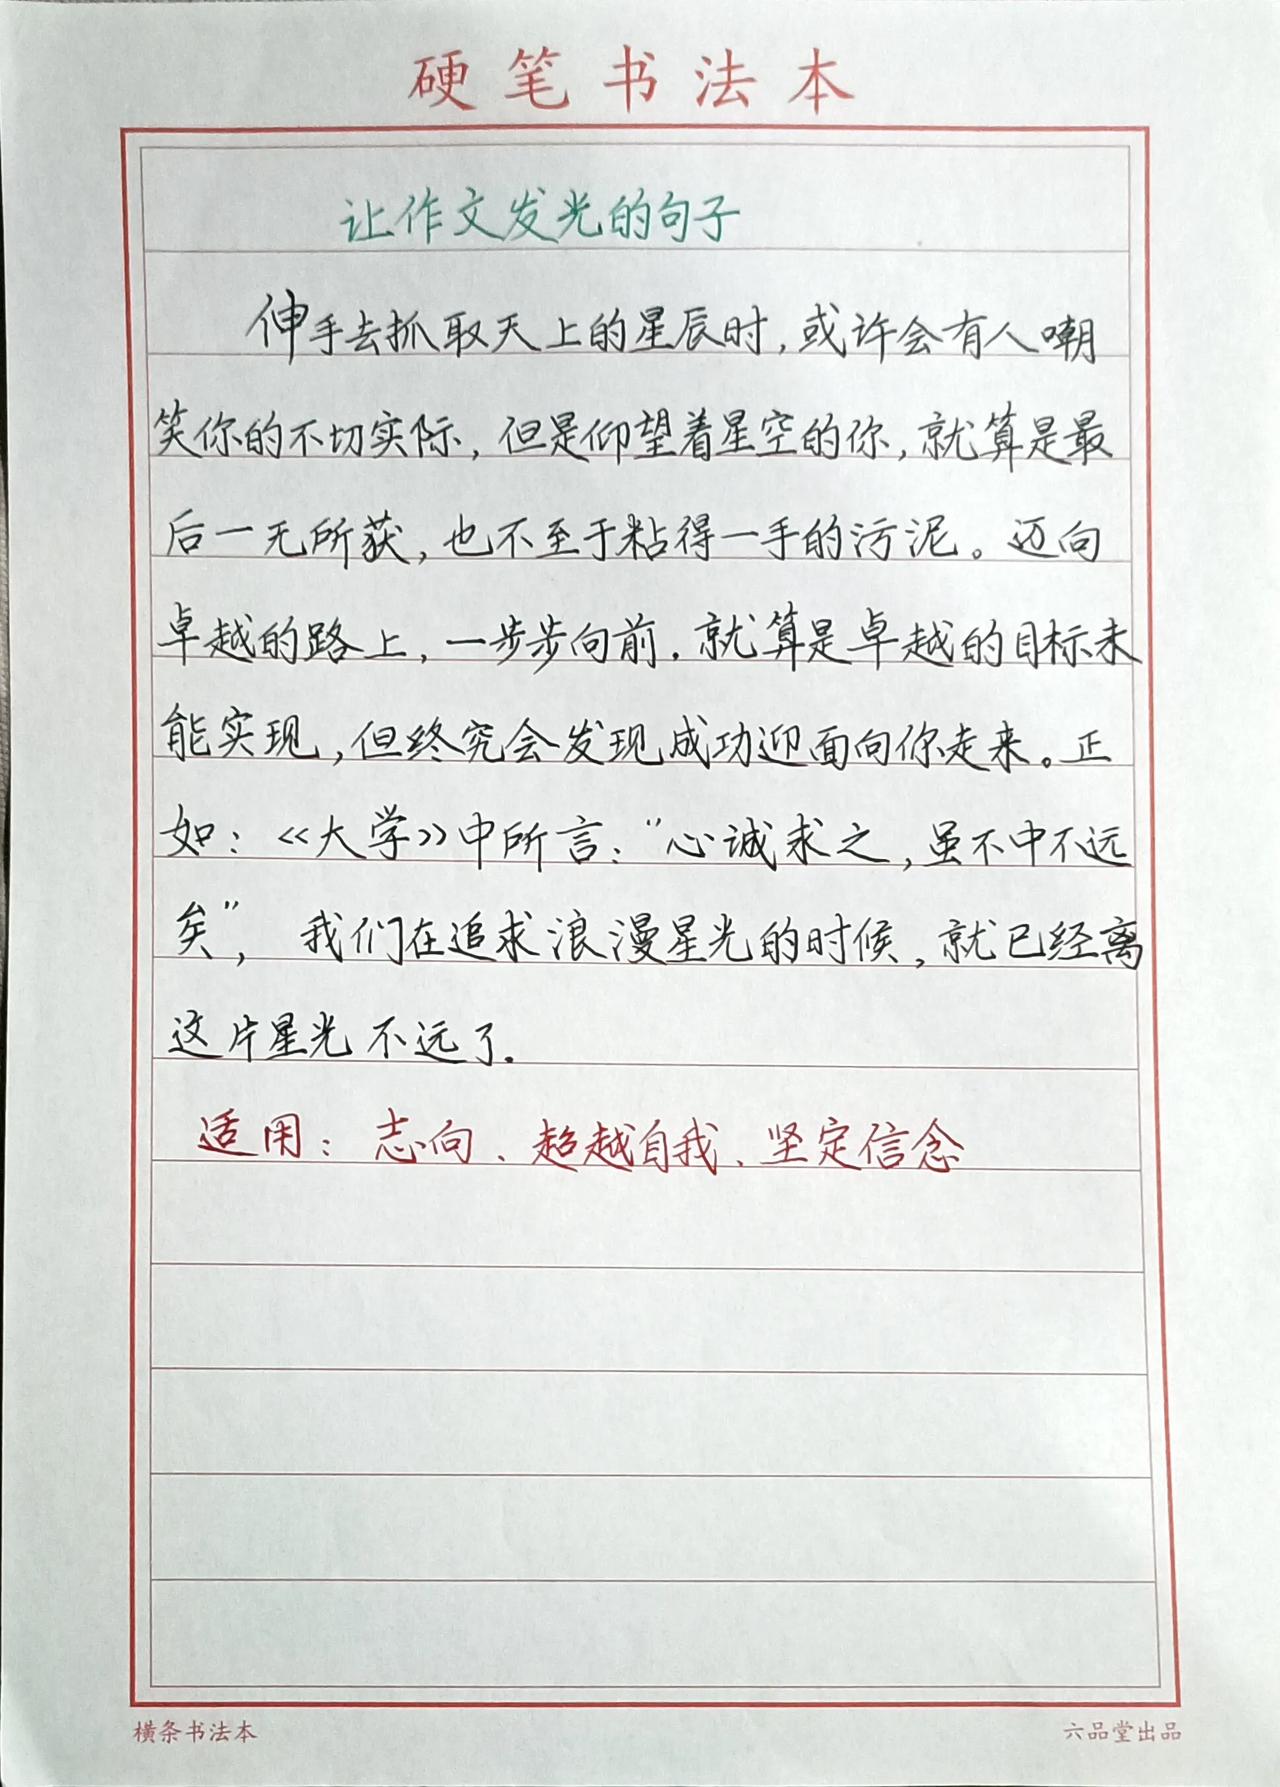 硬笔书法本
让作文发光的句子
伸手去抓取天上的星辰时,或许会有人嘲
笑你的不切实际,但是仰望着星空的你,就算是最
后一无所获,也不至于粘得一手的污泥。迈向
卓越的路上,一步步向前.就算是卓越的目标未
能实现,但终究会发现成功迎面向你走来。正
如:《大学》中所言:"心诚求之,虽不中不远
矣",我们在追求浪漫星光的时候,就已经离
这片星光不远了.
适用:志向、超越自我、坚定信念
横条书法本
六品堂出品